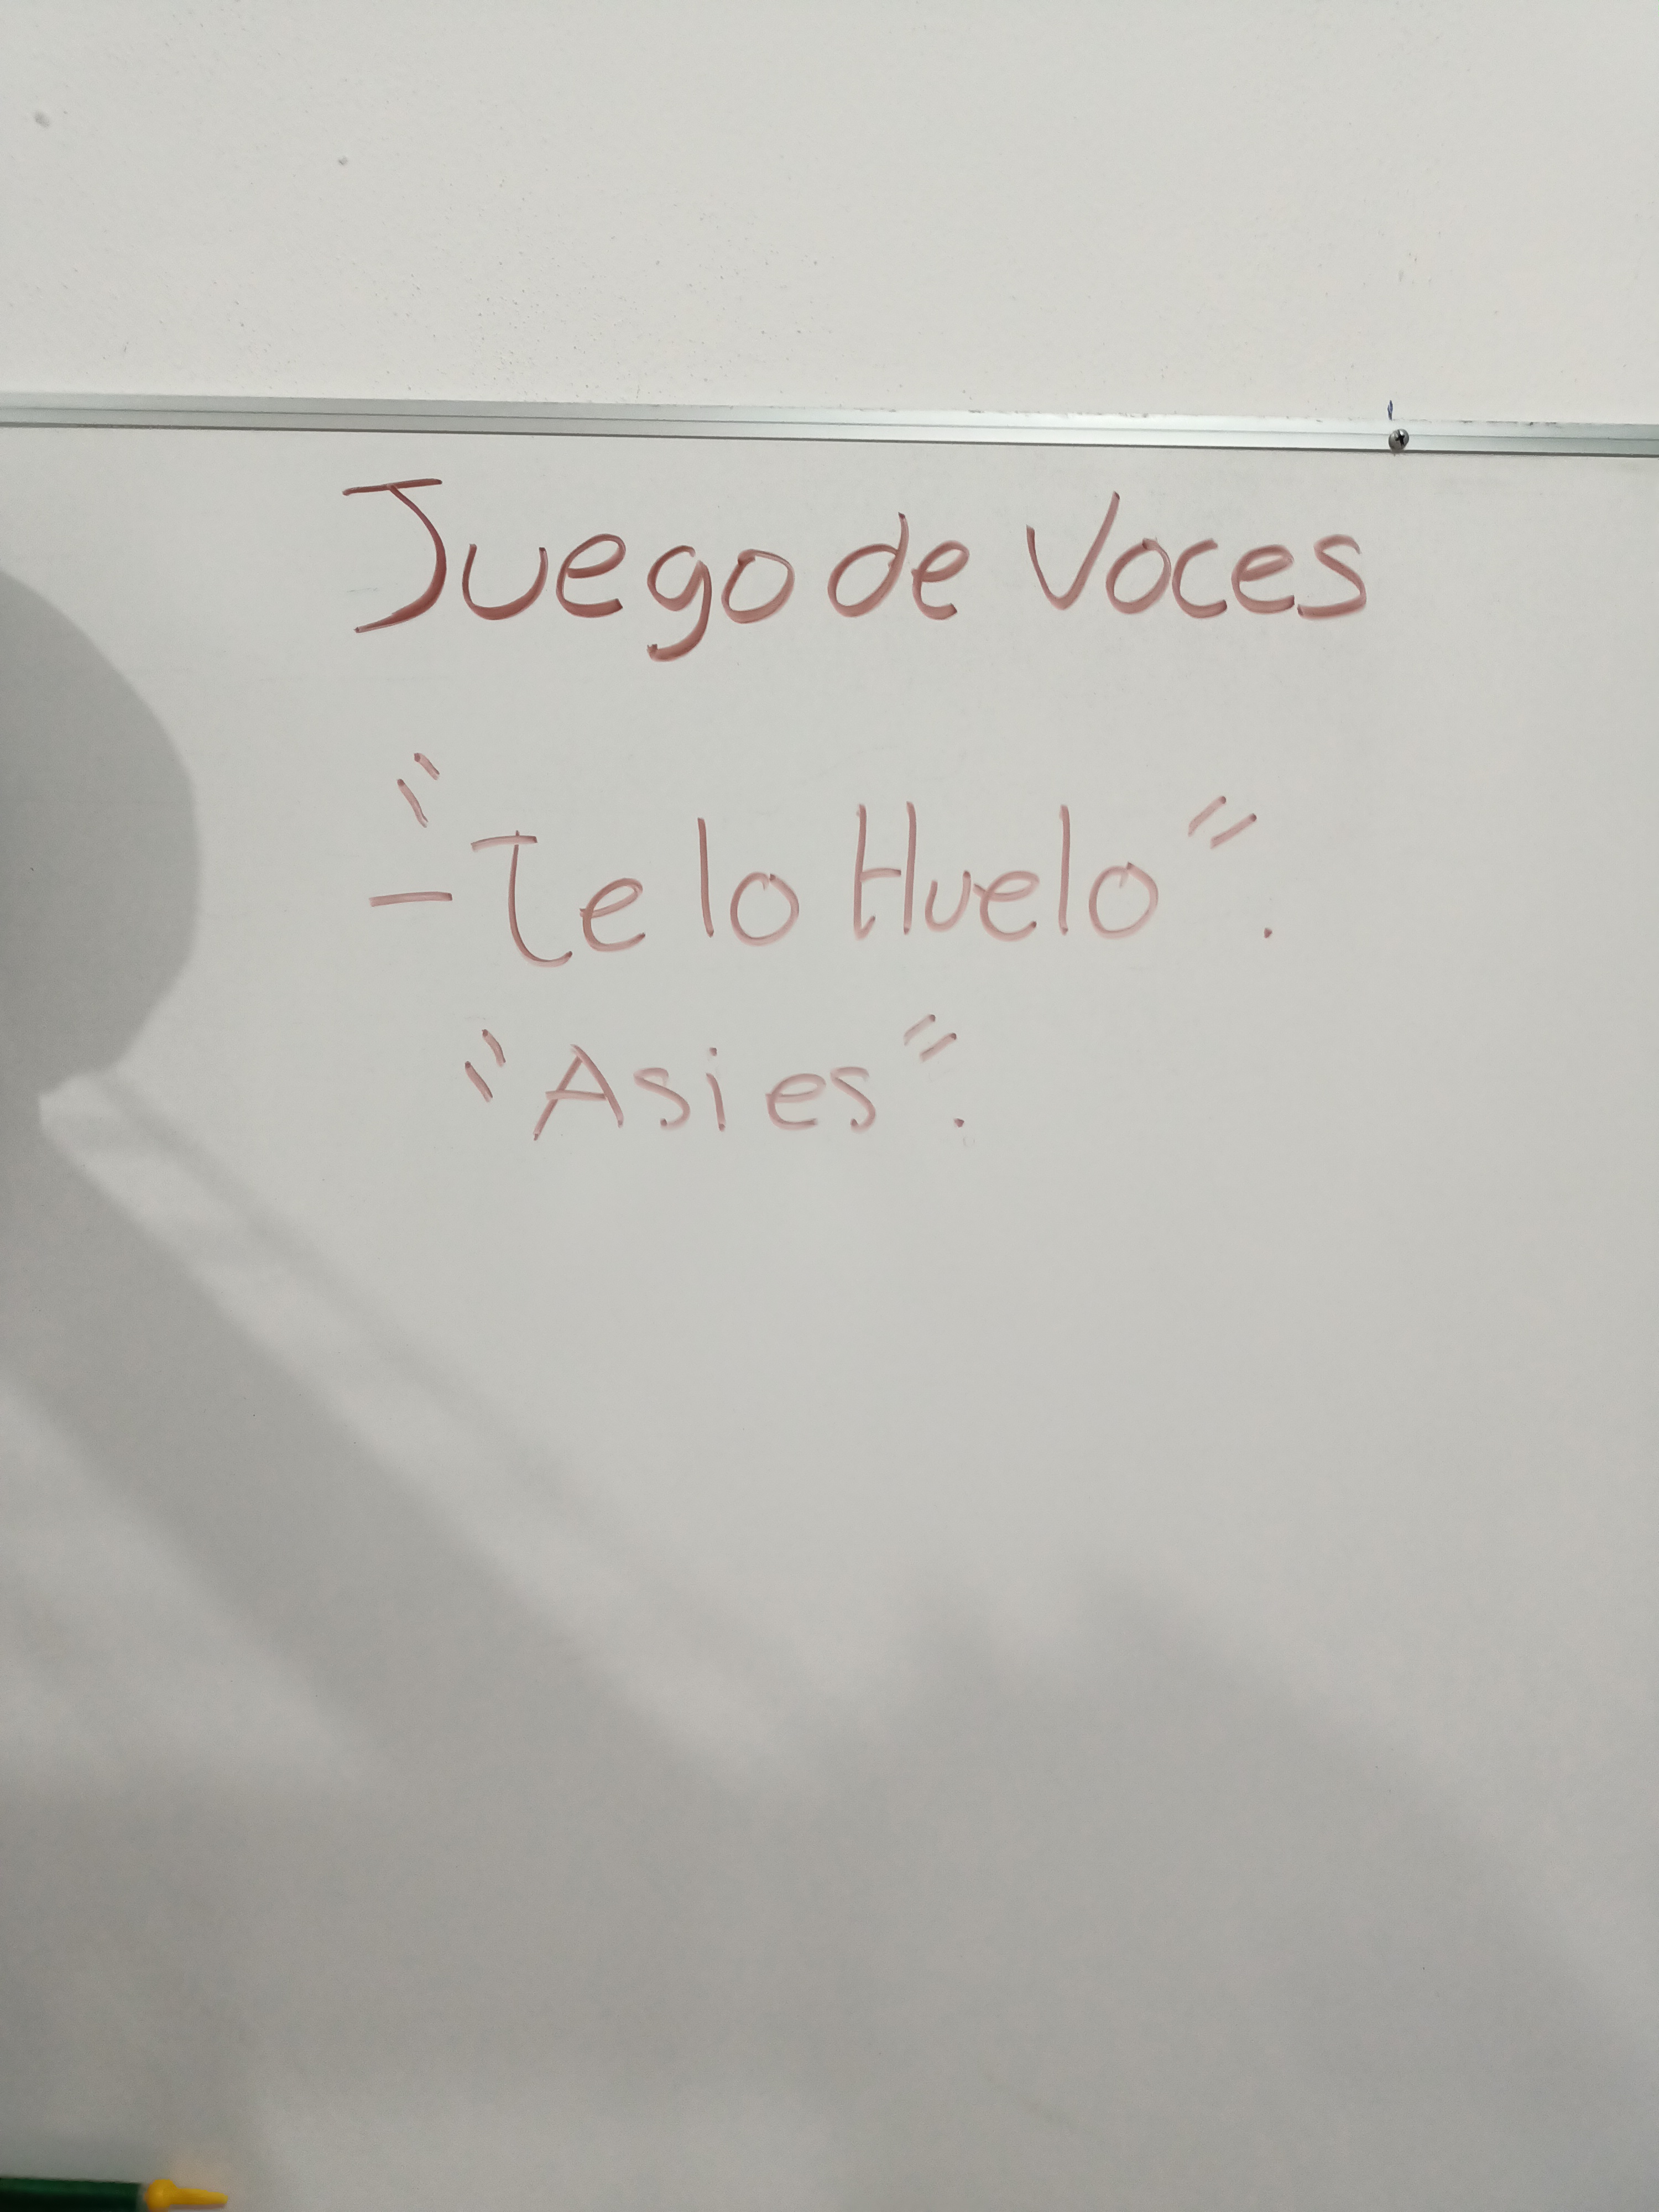 Juego de Voces
- "Te lo Huelo".
"Asi es".